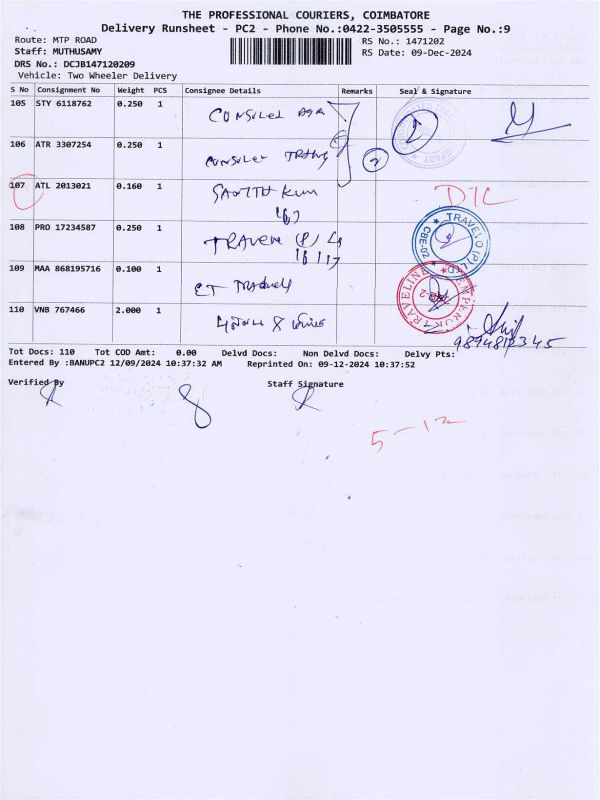 THE PROFESSIONAL COURIERS, COIMBATORE
Delivery Runsheet - PC2 - Phone No.:0422-3505555 - Page No.:9
Route: MTP ROAD RS No.: 1471202
Staff: MUTHUSAMY RS Date: 09-Dec-2024
DRS No.: DCJB147120209
Vehicle: Two Wheeler Delivery
S No Consignment No Weight PCS Consignee Details Remarks Seal & Signature
105 STY 6118762 0.250 1
106 ATR 3307254 0.250 1
107 ATL 2013021 0.160 1
108 PRO 17234587 0.250 1
109 MAA 868195716 0.100 1
110 VNB 767466 2.000 1
TRAVELO (P) LTD
CBE-02
TRAVELINE
9894812345
Tot Docs: 110 Tot COD Amt: 0.00 Delvd Docs: Non Delvd Docs: Delvy Pts:
Entered By :BANUPC2 12/09/2024 10:37:32 AM Reprinted On: 09-12-2024 10:37:52
Verified By Staff Signature
5-12